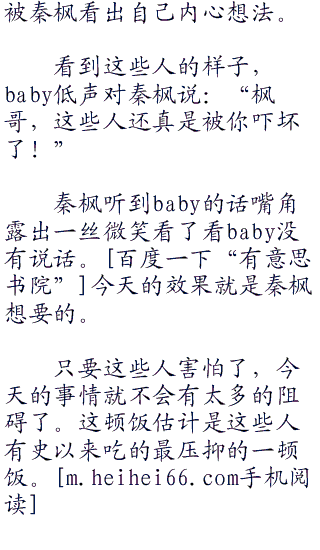 被秦枫看出自己内心想法。
看到这些人的样子，
baby低声对秦枫说：“枫
哥，这些人还真是被你吓坏
了！”
秦枫听到baby的话嘴角
露出一丝微笑看了看baby没
有说话。[百度一下“有意思
书院”]今天的效果就是秦枫
想要的。
只要这些人害怕了，今
天的事情就不会有太多的阻
碍了。这顿饭估计是这些人
有史以来吃的最压抑的一顿
饭。[m.heihei66.com手机阅
读]